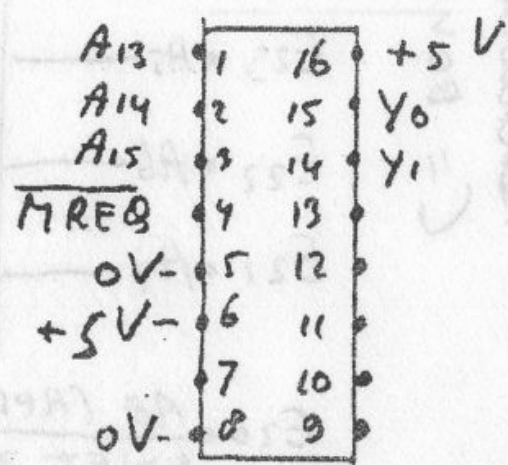 A13 1 16 +5 V
A14 2 15 Y0
A15 3 14 Y1
MREQ 4 13
0V- 5 12
+5V- 6 11
7 10
0V- 8 9